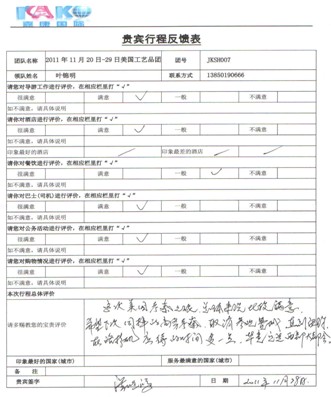 KAKO
嘉康国际
贵宾行程反馈表
团队名称 2011年11月20日-29日美国工艺品团 团号 JKSH007
领队姓名 叶锦明 联系方式 13850190666
请您对导游工作进行评价，在相应栏里打“√”
很满意 满意 √ 一般 不满意
如不满意，请具体说明
请您对酒店进行评价，在相应栏里打“√”
很满意 满意 √ 一般 不满意
如不满意，请具体说明
印象最好的酒店 印象最差的酒店
请您对餐饮进行评价，在相应栏里打“√”
很满意 满意 √ 一般 不满意
如不满意，请具体说明
请你对巴士(司机)进行评价，在相应栏里打“√”
很满意 满意 √ 一般 不满意
如不满意，请具体说明
请您对公务活动进行评价，在相应栏里打“√”
很满意 满意 √ 一般 不满意
如不满意，请具体说明
请您对购物情况进行评价，在相应栏里打“√”
很满意 满意 √ 一般 不满意
如不满意，请具体说明
本次行程总体评价
请多赐教您的宝贵评价
这次美国之旅，总体来说，比较满意。
印象最好的国家(城市) 服务最满意的国家(城市)
备注
贵宾签字 日期 2011年11月28日